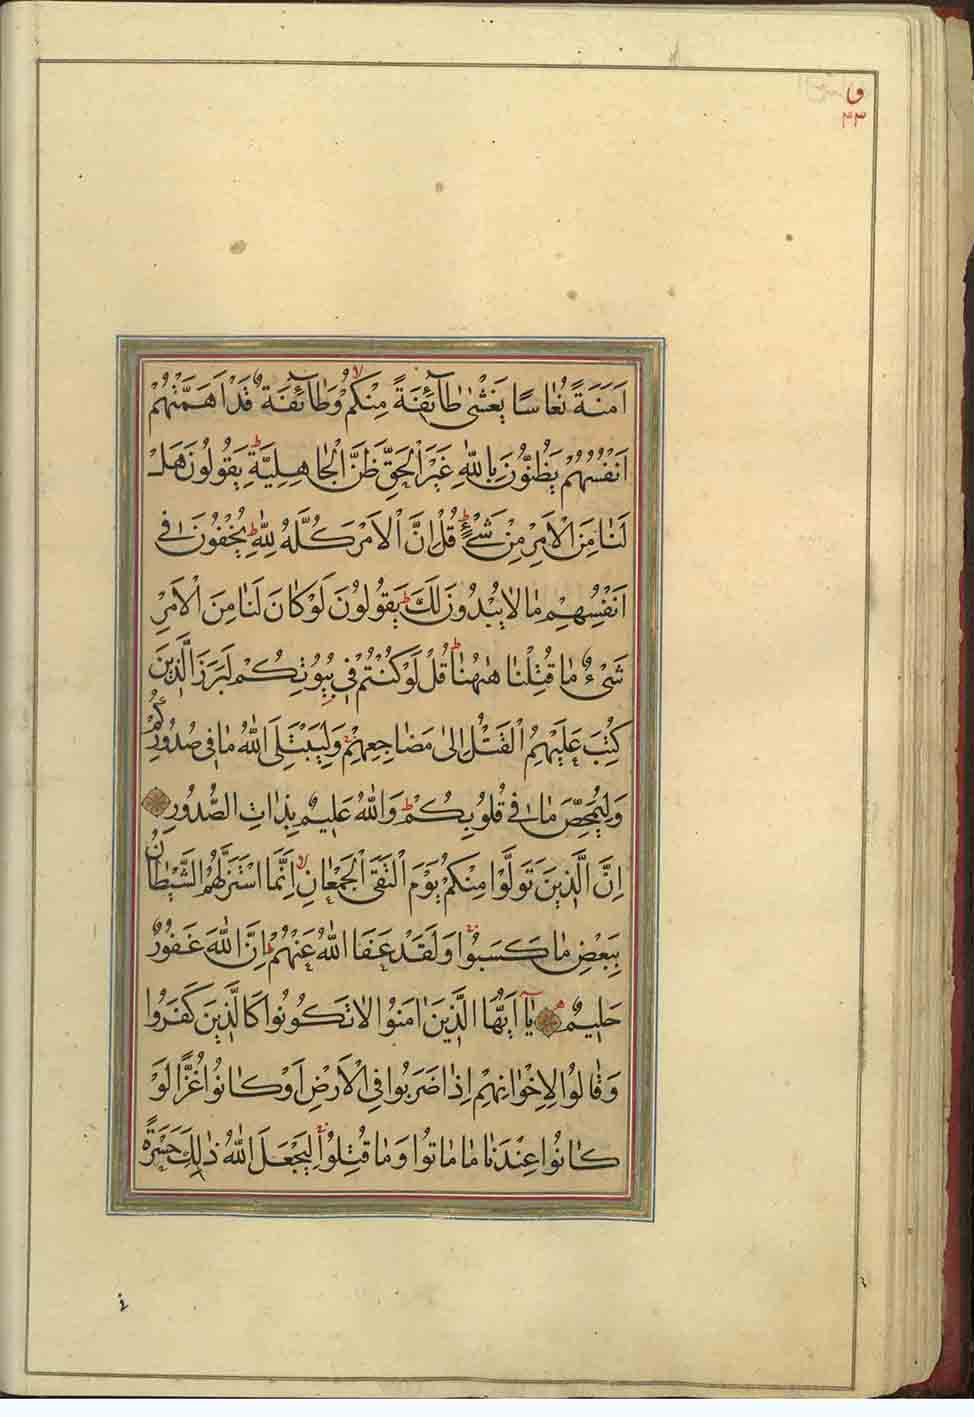 و
۴۳
اَمَنَةً نُعَاسًا يَغْشٰى طَآئِفَةً مِنْكُمْ ۙ وَطَآئِفَةٌ قَدْ اَهَمَّتْهُمْ
اَنْفُسُهُمْ يَظُنُّونَ بِاللّٰهِ غَيْرَ الْحَقِّ ظَنَّ الْجَاهِلِيَّةِ ۜ يَقُولُونَ هَلْ
لَنَا مِنَ الْاَمْرِ مِنْ شَىْءٍ ۜ قُلْ اِنَّ الْاَمْرَ كُلَّهُ لِلّٰهِ ۜ يُخْفُونَ فِى
اَنْفُسِهِمْ مَا لَا يُبْدُونَ لَكَ ۜ يَقُولُونَ لَوْ كَانَ لَنَا مِنَ الْاَمْرِ
شَىْءٌ مَا قُتِلْنَا هٰهُنَا ۜ قُلْ لَوْ كُنْتُمْ فِى بُيُوتِكُمْ لَبَرَزَ الَّذِينَ
كُتِبَ عَلَيْهِمُ الْقَتْلُ اِلٰى مَضَاجِعِهِمْ وَلِيَبْتَلِىَ اللّٰهُ مَا فِى صُدُورِكُمْ
وَلِيُمَحِّصَ مَا فِى قُلُوبِكُمْ ۜ وَاللّٰهُ عَلِيمٌ بِذَاتِ الصُّدُورِ
اِنَّ الَّذِينَ تَوَلَّوْا مِنْكُمْ يَوْمَ الْتَقَى الْجَمْعَانِ ۙ اِنَّمَا اسْتَزَلَّهُمُ الشَّيْطَانُ
بِبَعْضِ مَا كَسَبُوا وَلَقَدْ عَفَا اللّٰهُ عَنْهُمْ اِنَّ اللّٰهَ غَفُورٌ
حَلِيمٌ يَآ اَيُّهَا الَّذِينَ اٰمَنُوا لَا تَكُونُوا كَالَّذِينَ كَفَرُوا
وَقَالُوا لِاِخْوَانِهِمْ اِذَا ضَرَبُوا فِى الْاَرْضِ اَوْ كَانُوا غُزًّا لَوْ
كَانُوا عِنْدَنَا مَا مَاتُوا وَمَا قُتِلُوا لِيَجْعَلَ اللّٰهُ ذٰلِكَ حَسْرَةً